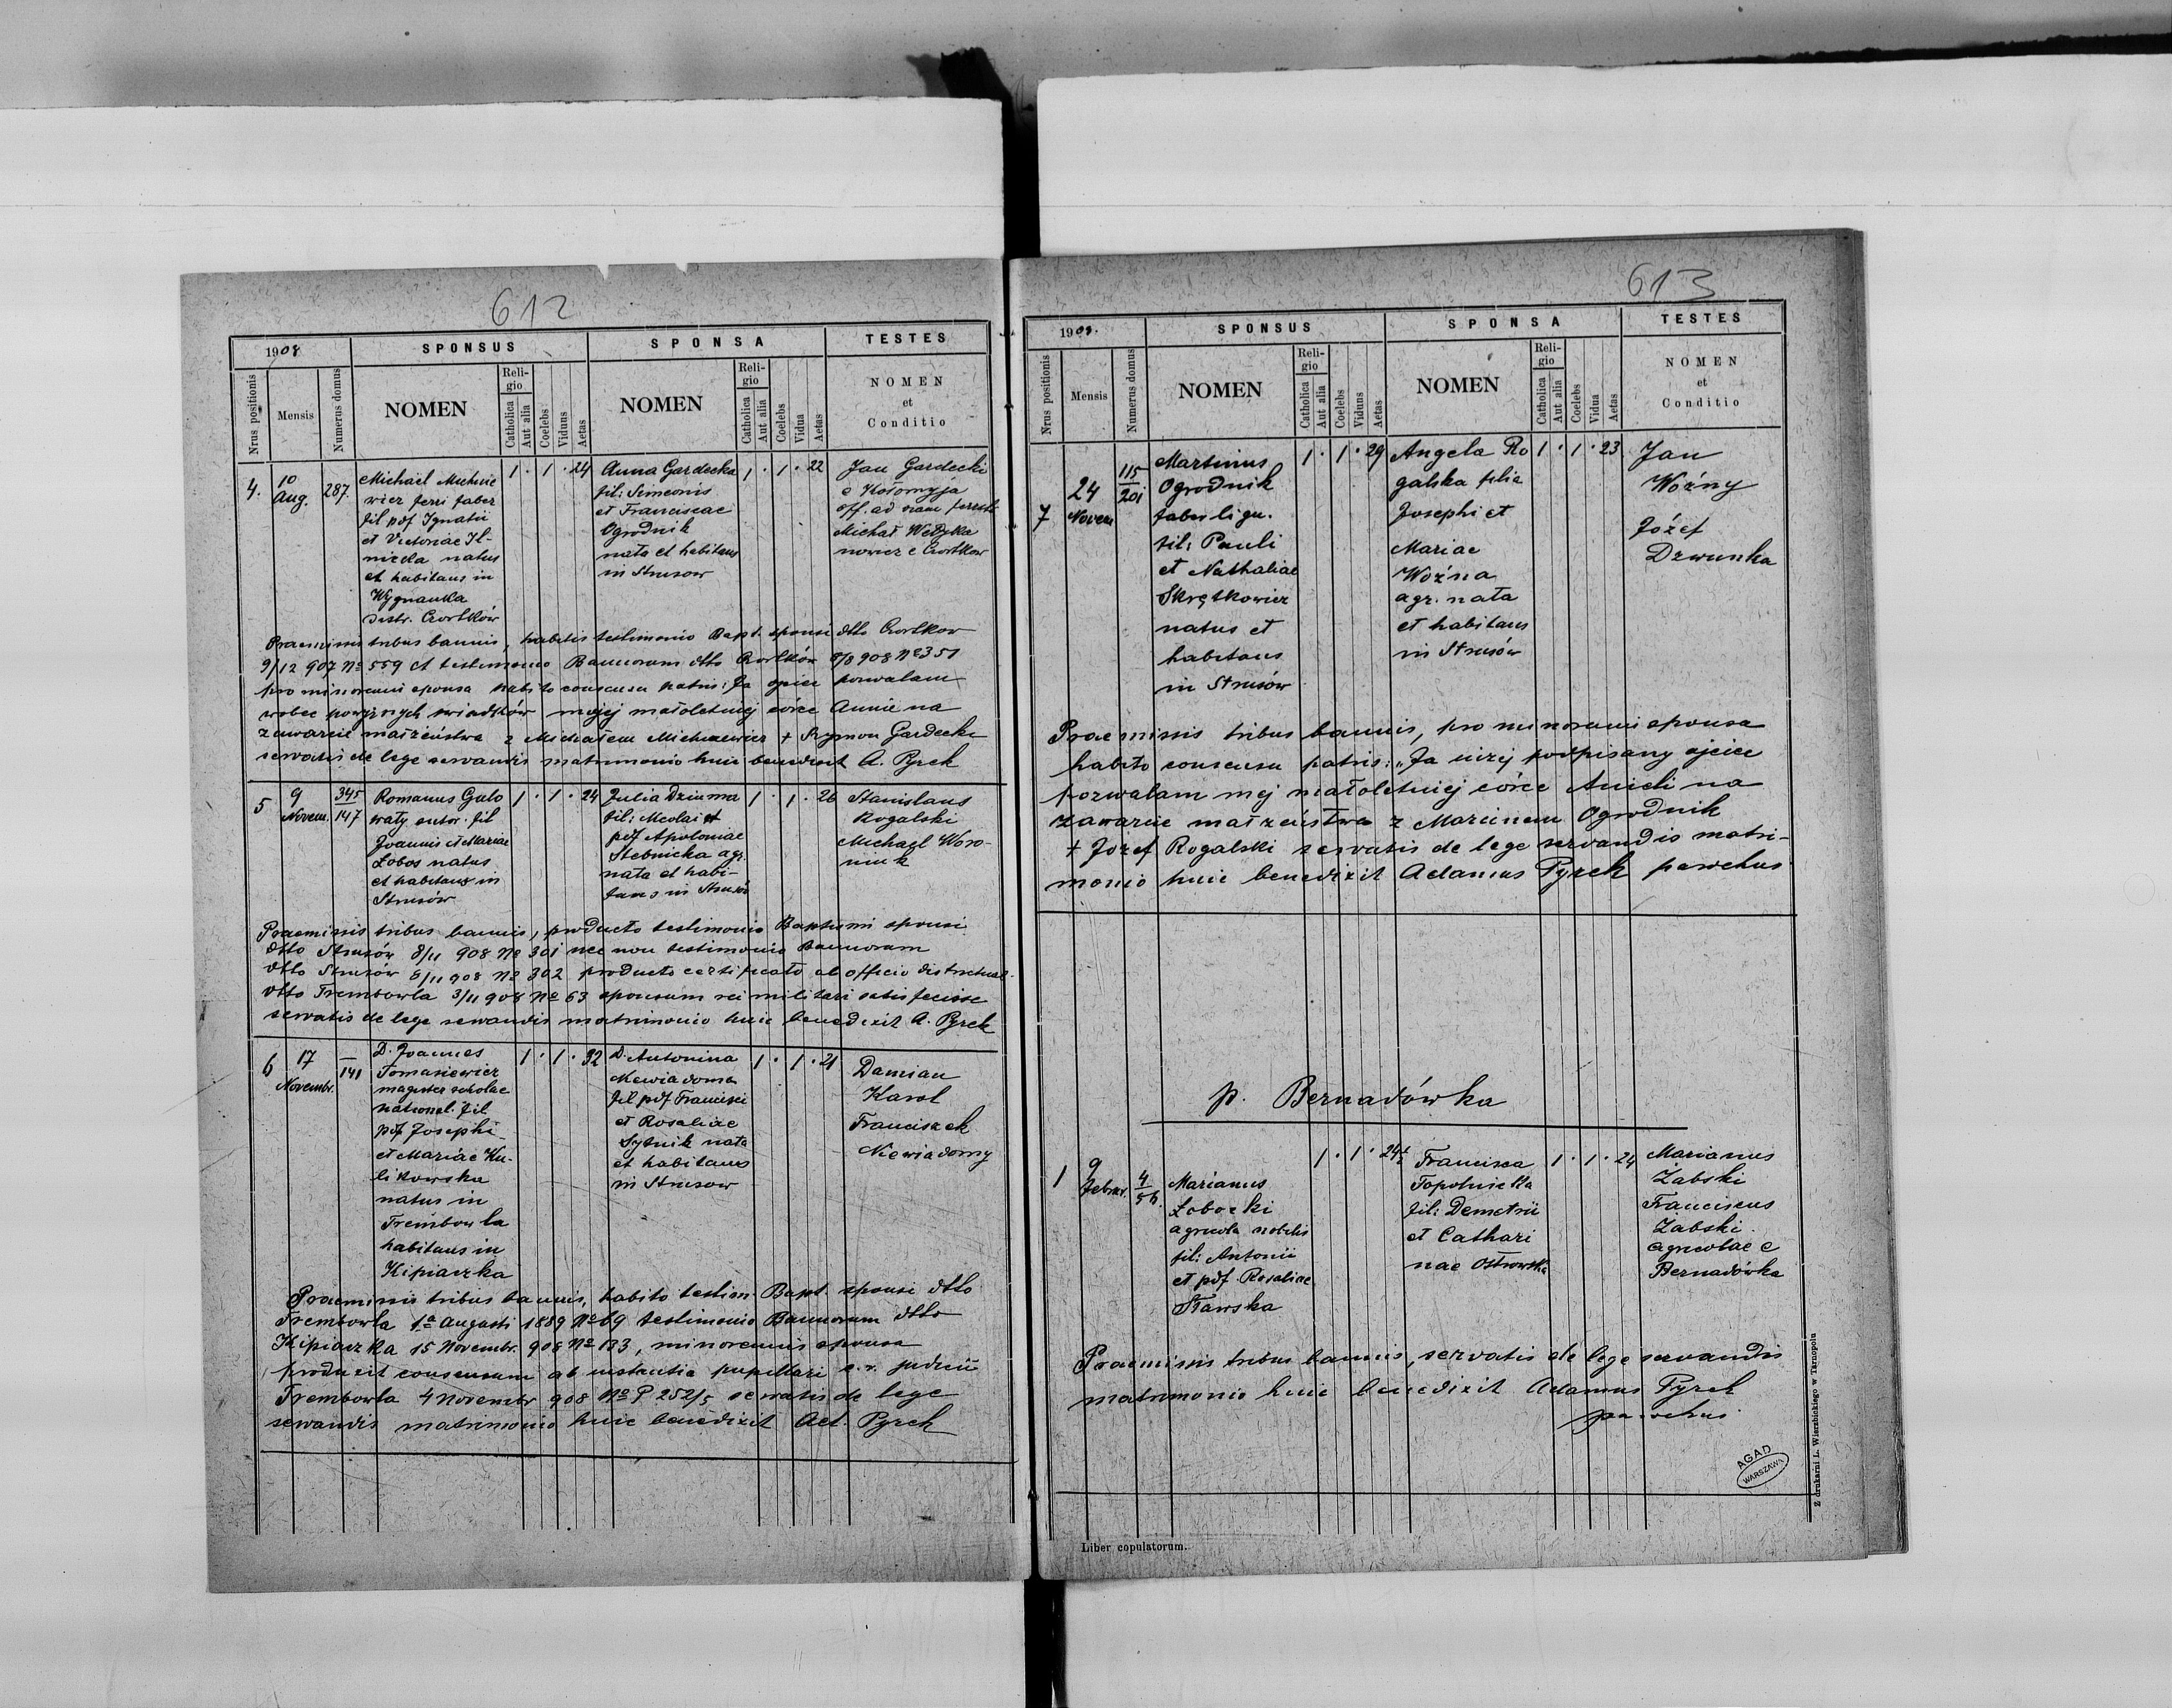 612
1908
SPONSUS
SPONSA
TESTES
Nrus positionis
Mensis
Numerus domus
NOMEN
Religio
Catholica
Aut alia
Coelebs
Viduus
Aetas
NOMEN
Religio
Catholica
Aut alia
Coelebs
Vidua
Aetas
NOMEN
et
Conditio
4.
10
Aug.
287.
Michael Michnie
wicz ferri faber
fil pdf Ignatii
et Victoriae Il-
nicka natus
et habitans in
Wygnanka
distr. Czortków
1 . 1 . 24
Anna Gardecka
fil: Simeonis
et Franciscae
Ogrodnik
nata et habitans
in Strusow
1 . 1 . 22
Jan Gardecki
e Kołomyja
off. ad viam ferrat.
Michał
nowicz e Czortkow
Praemissis tribus bannis, habitis testimonio Bapt. sponsi dtto Czortkow
9/12 907 No 559 et testimonio Bannorum dtto Czortków 8/8 908 No 351
pro minorenni sponsa habito consensu patris: Ja ojciec pozwalam
wobec powyżnych świadków mojej małoletniej córce Annie na
zawarcie małżeństwa z Michałem Michniewicz + Szymon Gardecki
servatis de lege servandis matrimonio huic benedixit A. Pyrek
5
9
Novem.
345
147
Romanus Gulo
waty sutor. fil
Joannis et Mariae
Łobos natus
et habitans in
Strusów
1 . 1 . 24
Julia Dziuma
fil: Nicolai et
pdf Apoloniae
Stebnicka agr.
nata et habi-
tans in Strusów
1 . 1 . 26
Stanislaus
Rogalski
Michael Woro-
niuk
Praemissis tribus bannis, producto testimonio Baptismi sponsi
dtto Strusów 8/11 908 No 301 nec non testimonio Bannorum
dtto Strusów 8/11 908 No 302 producto certificato ab officio districtual.
dtto Trembowla 3/11 908 No 63 sponsum rei militari satisfecisse
servatis de lege servandis matrimonio huic benedixit A. Pyrek
6
17
Novembr.
—
141
D. Joannes
Tomasiewicz
magister scholae
national. fil
pdf Josephi
et Mariae Ku-
likowska
natus in
Trembowla
habitans in
Kipiaczka
1 . 1 . 32
D. Antonina
Niewiadoma
fil pdf Francisci
et Rosaliae
Sytnik nata
et habitans
in Strusow
1 . 1 . 21
Damian
Karol
Franciszek
Niewiadomy
Praemissis tribus bannis, habito testim. Bapt. sponsi dtto
Trembowla 1a Augusti 1889 No 69 testimonio Bannorum dtto
Kipiaczka 15 Novembr. 908 No 183, minorennis sponsa
produxit consensum ab instantia pupillari c. r. judicii
Trembowla 4 Novembr 908 No P 252/5 servatis de lege
servandis matrimonio huic benedixit Ad. Pyrek
613
1908.
SPONSUS
SPONSA
TESTES
Nrus positionis
Mensis
Numerus domus
NOMEN
Religio
Catholica
Aut alia
Coelebs
Viduus
Aetas
NOMEN
Religio
Catholica
Aut alia
Coelebs
Vidua
Aetas
NOMEN
et
Conditio
7
24
Novem
115
201
Martinus
Ogrodnik
faber lign.
fil: Pauli
et Nathaliae
Skrętkowicz
natus et
habitans
in Strusów
1 . 1 . 29
Angela Ro
galska filia
Josephi et
Mariae
Woźna
agr. nata
et habitans
in Strusów
1 . 1 . 23
Jan
Woźny
Józef
Dzwunka
Praemissis tribus bannis, pro minorenni sponsa
habito consensu patris: „Ja niżej podpisany ojciec
pozwalam mej małoletniej córce Anieli na
zawarcie małżeństwa z Marcinem Ogrodnik
+ Jozef Rogalski servatis de lege servandis matri-
monio huic benedixit Adamus Pyrek parochus
p. Bernadówka
1
9
Febru.
4
56
Marianus
Łobocki
agricola nobilis
fil: Antonii
et pdf. Rosaliae
Sławska
1 . 1 . 24½
Francisca
Topolnicka
fil: Demetrii
et Cathari
nae Ostrowska
1 . 1 . 24
Marianus
Żabski
Franciscus
Żabski
agricolae e
Bernadówka
Praemissis tribus bannis, servatis de lege servandis
matrimonio huic benedixit Adamus Pyrek
parochus
AGAD
WARSZAWA
Z drukarni L. Wierzbickiego w Tarnopolu
Liber copulatorum.